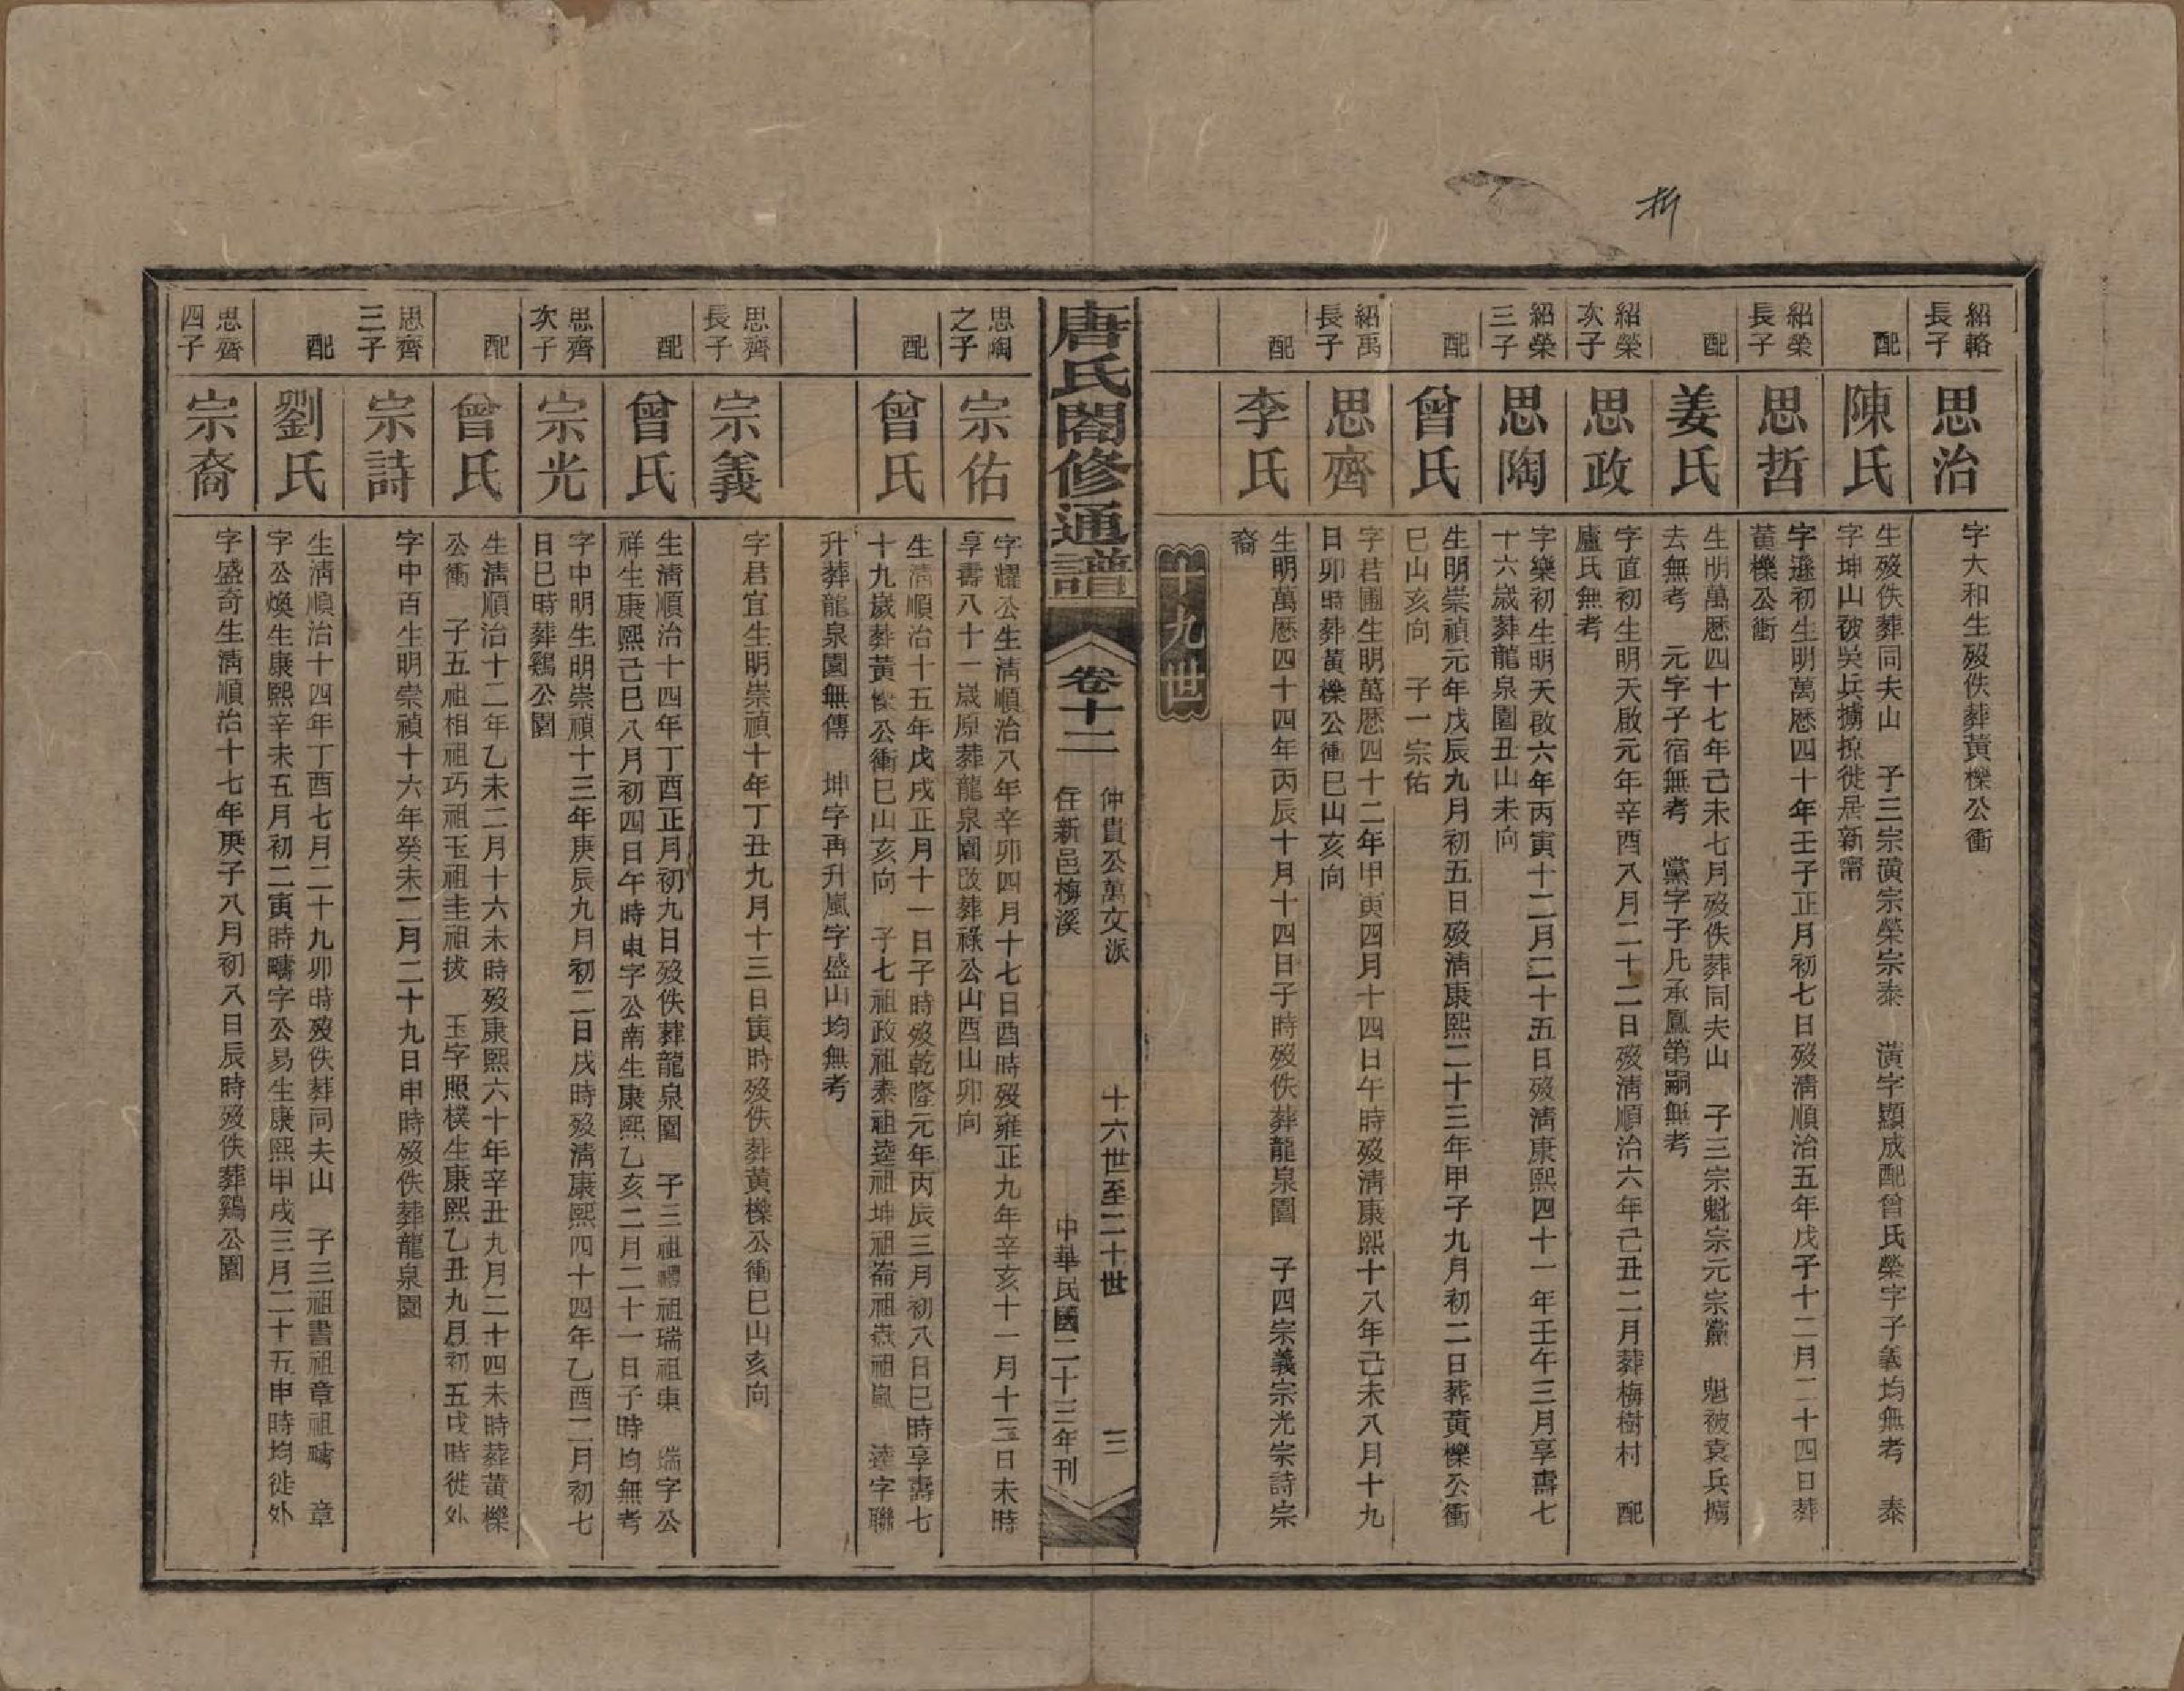 紹輅
長子
思治
字大和生歿佚葬黃櫟公衝
配
陳氏
生歿佚葬同夫山　子三宗潢宗榮宗泰　潢字顯成配曾氏榮字子義均無考　泰
字坤山被吳兵擄掠徙居新甯
紹榮
長子
思哲
字遜初生明萬歷四十年壬子正月初七日歿淸順治五年戊子十二月二十四日葬
黃櫟公衝
配
姜氏
生明萬歷四十七年己未七月歿佚葬同夫山　子三宗魁宗元宗黨　魁被袁兵擄
去無考　元字子宿無考　黨字子凡承鳳第嗣無考
紹榮
次子
思政
字直初生明天啟元年辛酉八月二十二日歿淸順治六年己丑二月葬梅樹村　配
盧氏無考
紹榮
三子
思陶
字樂初生明天啟六年丙寅十二月二十五日歿淸康熙四十一年壬午三月享壽七
十六歲葬龍泉園丑山未向
配
曾氏
生明崇禎元年戊辰九月初五日歿淸康熙二十三年甲子九月初二日葬黃櫟公衝
巳山亥向　子一宗佑
紹禹
長子
思齊
字君圃生明萬歷四十二年甲寅四月十四日午時歿淸康熙十八年己未八月十九
日卯時葬黃櫟公衝巳山亥向
配
李氏
生明萬歷四十四年丙辰十月十四日子時歿佚葬龍泉園　子四宗義宗光宗詩宗
裔
十九世
唐氏閤修通譜
卷十二
仲貴公萬文派
住新邑梅溪
十六世至二十世
三
中華民國二十三年刊
思陶
之子
宗佑
字耀公生淸順治八年辛卯四月十七日酉時歿雍正九年辛亥十一月十三日未時
享壽八十一歲原葬龍泉園改葬祿公山酉山卯向
配
曾氏
生淸順治十五年戊戌正月十一日子時歿乾隆元年丙辰三月初八日巳時享壽七
十九歲葬黃櫟公衝巳山亥向　子七祖政祖泰祖逵祖坤祖崙祖嶽祖嵐　逵字聯
升葬龍泉園無傳　坤字再升嵐字盛山均無考
思齊
長子
宗義
字君宜生明崇禎十年丁丑九月十三日寅時歿佚葬黃櫟公衝巳山亥向
配
曾氏
生淸順治十四年丁酉正月初九日歿佚葬龍泉園　子三祖禮祖瑞祖東　瑞字公
祥生康熙己巳八月初四日午時東字公南生康熙乙亥二月二十一日子時均無考
思齊
次子
宗光
字中明生明崇禎十三年庚辰九月初二日戌時歿淸康熙四十四年乙酉二月初七
日巳時葬鷄公園
配
曾氏
生淸順治十二年乙未二月十六未時歿康熙六十年辛丑九月二十四未時葬黃櫟
公衝　子五祖相祖巧祖玉祖圭祖拔　玉字照樸生康熙乙丑九月初五戌時徙外
思齊
三子
宗詩
字中百生明崇禎十六年癸未二月二十九日申時歿佚葬龍泉園
配
劉氏
生淸順治十四年丁酉七月二十九卯時歿佚葬同夫山　子三祖書祖章祖疇　章
字公煥生康熙辛未五月初二寅時疇字公易生康熙甲戌三月二十五申時均徙外
思齊
四子
宗裔
字盛奇生淸順治十七年庚子八月初八日辰時歿佚葬鷄公園